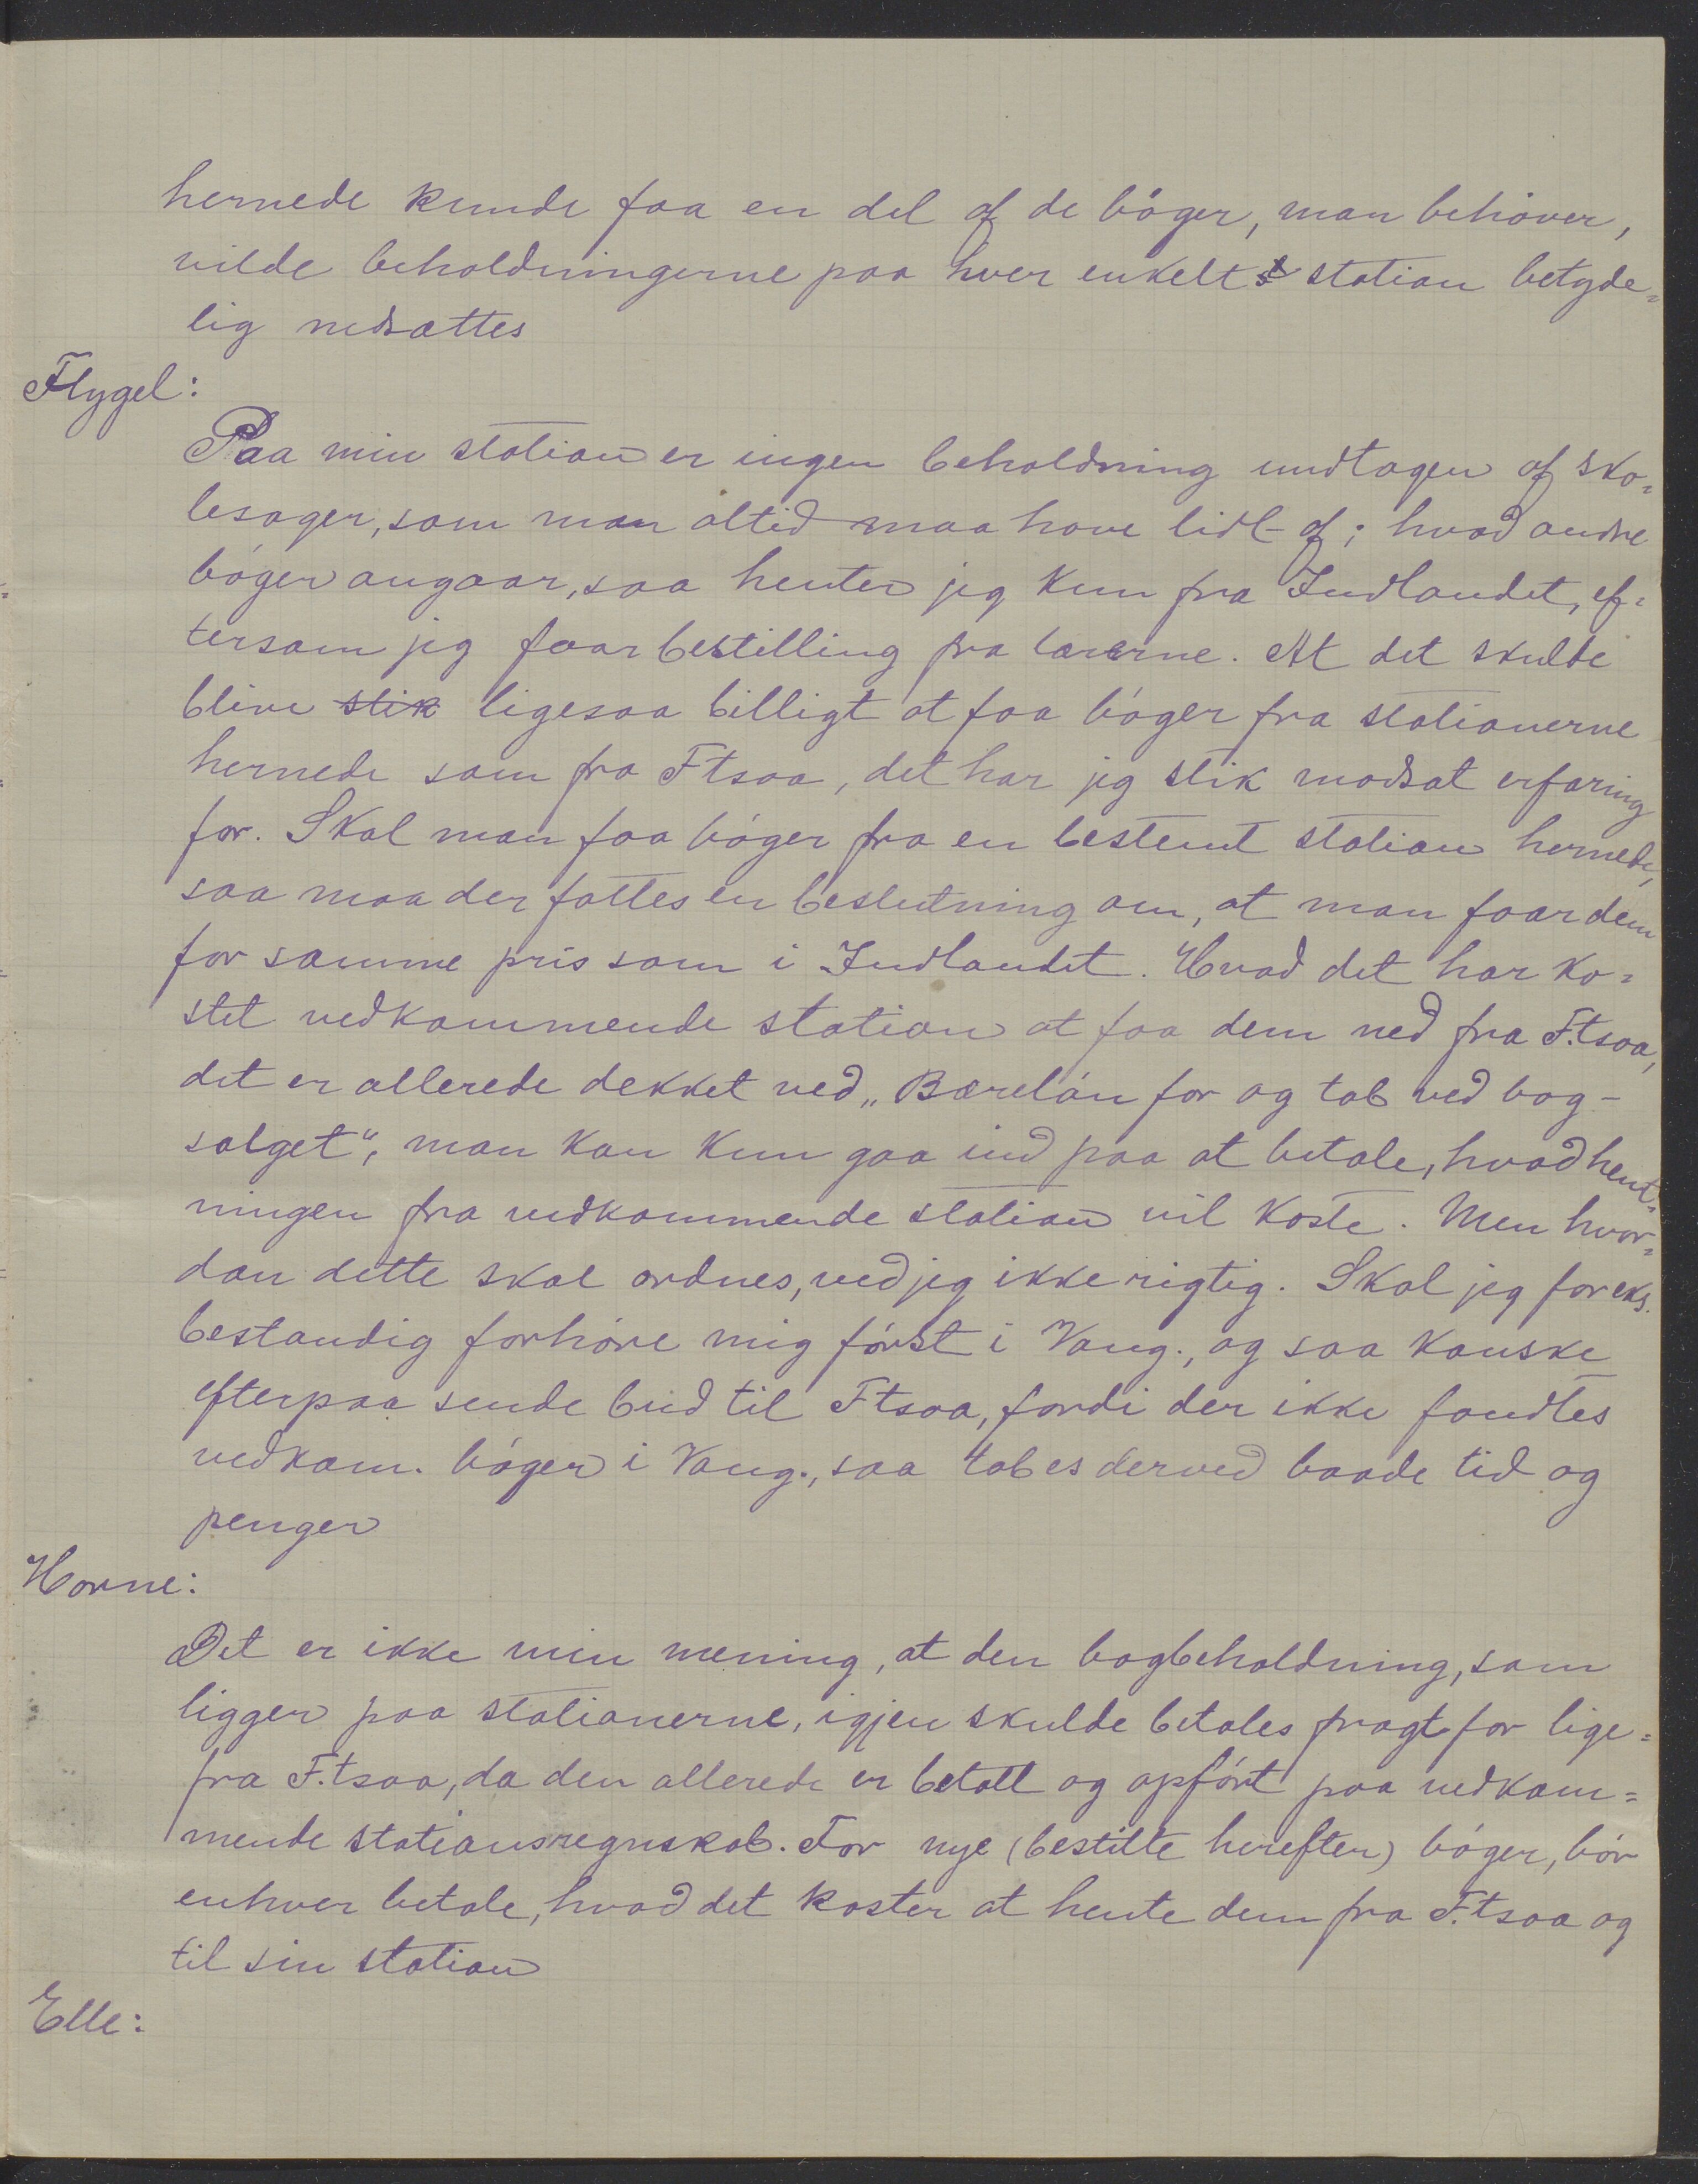 hernede kunde faa en del af de bøger, man behøver,
vilde beholdningerne paa hver enkelt station betyde=
lig nedsættes
Flygel:
Paa min station er ingen beholdning undtagen af sko=
lesager, som man altid maa have lidt af; hvad andre
bøger angaar, saa henter jeg kun fra Indlandet, ef=
tersom jeg faar bestilling fra lærerne. At det skulde
blive slik ligesaa billigt at faa bøger fra stationerne
hernede som fra Ftsoa, det har jeg stik modsat erfaring
for. Skal man faa bøger fra en bestemt station hernede,
saa maa der fattes en beslutning om, at man faar dem
for samme pris som i Indlandet. Hvad det har ko=
stet vedkommende station at faa dem ned fra F.tsoa,
det er allerede dekket ved „Bæreløn for og tab ved bog-
salget“, man kan kun gaa ind paa at betale, hvad hent=
ningen fra vedkommende station vil koste. Men hvor=
dan dette skal ordnes, ved jeg ikke rigtig. Skal jeg for eks.
bestandig forhøre mig først i Vang., og saa kanske
efterpaa sende bud til Ftsoa, fordi der ikke fandtes
vedkom. bøger i Vang., saa tabes derved baade tid og
penger
Horne:
Det er ikke min mening, at den bogbeholdning, som
ligger paa stationerne, igjen skulde betales fragt for lige=
fra F.tsoa, da den allerede er betalt og opført paa vedkom=
mende stationsregnskab. For nye (bestilte herefter) bøger, bør
enhver betale, hvad det koster at hente dem fra F.tsoa og
til sin station
Elle: